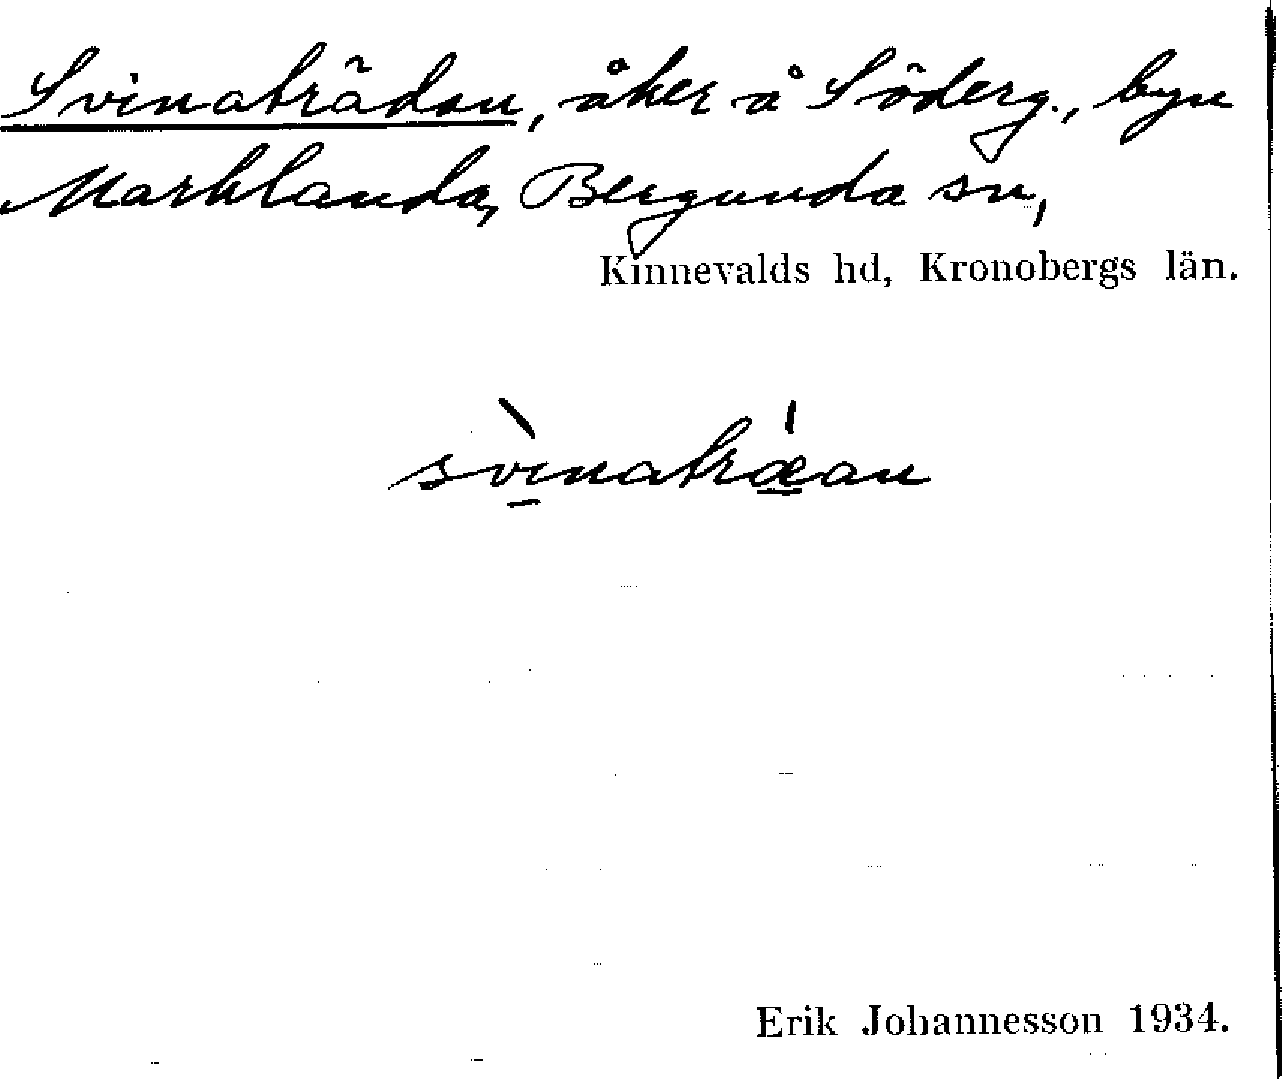 Svinaträdan, åker å Söderg., byn
Marklanda, Bergunda sn,
Kinnevalds hd, Kronobergs län.
svìnatrǽan
Erik Johannesson 1934.